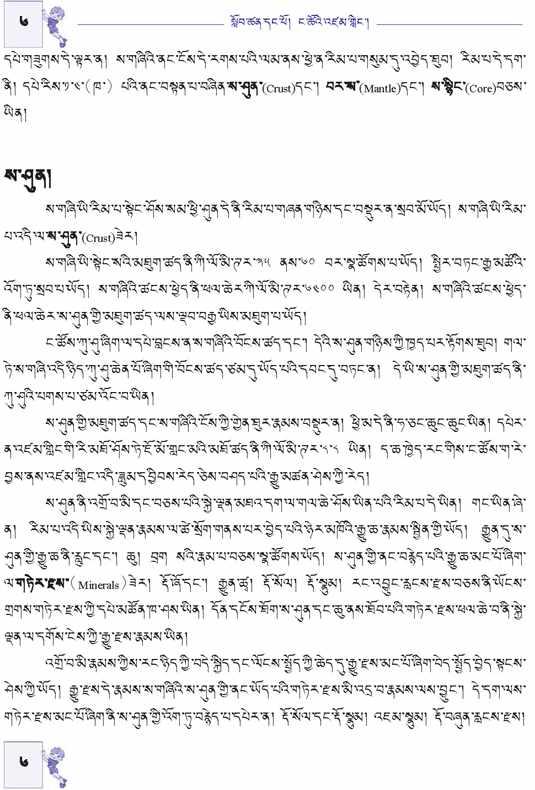 ༦
སློབ་ཚན་དང་པོ། ང་ཚོའི་འཛམ་གླིང་།
དཔེ་གཟུགས་དེ་ལྟར་ན། ས་གཞིའི་ནང་ངོས་དེ་རགས་པའི་ལམ་ནས་ཕྱེ་ན་རིམ་པ་གསུམ་དུ་འབྱེད་ཐུབ། རིམ་པ་དེ་དག་
ནི། དཔེ་རིས་༡་༤་(ཁ་) པའི་ནང་བསྟན་པ་བཞིན་ས་ཤུན་(Crust)དང་། བར་ས་(Mantle)དང་། ས་སྙིང་(Core)བཅས་
ཡིན།
ས་ཤུན།
ས་གཞི་ཡི་རིམ་པ་སྟེང་ཤོས་སམ་ཕྱི་ཤུན་དེ་ནི་རིམ་པ་གཞན་གཉིས་དང་བསྡུར་ན་སྲབ་མོ་ཡོད། ས་གཞི་ཡི་རིམ་
པ་འདི་ལ་ས་ཤུན་(Crust)ཟེར།
ས་གཞི་ཡི་སྟེང་སའི་མཐུག་ཚད་ནི་ཀི་ལོ་མི་ཊར་༣༥ ནས་༦༠ བར་སྣ་ཚོགས་པ་ཡོད། སྤྱིར་བཏང་རྒྱ་མཚོའི་
འོག་ཏུ་སྲབ་པ་ཡོད། ས་གཞིའི་ཚངས་ཕྱེད་ནི་ཕལ་ཆེར་ཀི་ལོ་མི་ཊར་༦༤༠༠ ཡིན། དེར་བརྟེན། ས་གཞིའི་ཚངས་ཕྱེད་
ནི་ཕལ་ཆེར་ས་ཤུན་གྱི་མཐུག་ཚད་ལས་ལྡབ་བརྒྱ་ཡིས་མཐུག་པ་ཡོད།
ང་ཚོས་ཀུ་ཤུ་ཞིག་ལ་དཔེ་བླངས་ན་ས་གཞིའི་བོངས་ཚད་དང་། དེའི་ས་ཤུན་གཉིས་ཀྱི་ཁྱད་པར་རྟོགས་ཐུབ། གལ་
ཏེ་ས་གཞི་འདི་ཉིད་ཀུ་ཤུ་ཆེན་པོ་ཞིག་གི་བོངས་ཚད་ཙམ་དུ་ཡོད་པའི་དབང་དུ་བཏང་ན། དེ་ཡི་ས་ཤུན་གྱི་མཐུག་ཚད་ནི་
ཀུ་ཤུའི་པགས་པ་ཙམ་འོང་བ་ཡིན།
ས་ཤུན་གྱི་མཐུག་ཚད་དང་ས་གཞིའི་ངོས་ཀྱི་གྱེན་ཐུར་རྣམས་བསྡུར་ན། ཕྱི་མ་དེ་ནི་ཧ་ཅང་ཆུང་ཆུང་ཡིན། དཔེར་
ན་འཛམ་གླིང་གི་རི་མཐོ་ཤོས་ཏེ་ཇོ་མོ་གླང་མའི་མཐོ་ཚད་ནི་ཀི་ལོ་མི་ཊར་༨་༨ ཡིན། ད་ཆ་ཁྱེད་རང་གིས་ང་ཚོས་ག་རེ་
བྱས་ནས་འཛམ་གླིང་འདི་ཟླུམ་དབྱིབས་རེད་ཅེས་བཤད་པའི་རྒྱུ་མཚན་ཤེས་ཀྱི་རེད།
ས་ཤུན་ནི་འགྲོ་བ་མི་དང་བཅས་པའི་སྐྱེ་ལྡན་མཐའ་དག་ལ་གལ་ཆེ་ཤོས་ཡིན་པའི་རིམ་པ་དེ་ཡིན། གང་ཡིན་ཞེ་
ན། རིམ་པ་འདི་ཡིས་སྐྱེ་ལྡན་རྣམས་ལ་ཚེ་སྲོག་གནས་པར་བྱེད་པའི་ཉེར་མཁོའི་རྒྱུ་ཆ་རྣམས་སྤྲིན་གྱི་ཡོད། རྒྱུན་དུ་ས་
ཤུན་གྱི་རྒྱུ་ཆ་ནི་རླུང་དང་། ཆུ། བྲག སའི་རྣམ་པ་བཅས་སྣ་ཚོགས་ཡོད། ས་ཤུན་གྱི་ནང་བརྙེད་པའི་རྒྱུ་ཆ་མང་པོ་ཞིག་
ལ་གཏེར་རྫས་(Minerals)ཟེར། རྡོ་ཞོ་དང་། རྒྱུན་ཚྭ། རྡོ་སོལ། རྡོ་སྣུམ། རང་འབྱུང་རླངས་རྫས་བཅས་ནི་ཡོངས་
གྲགས་གཏེར་རྫས་ཀྱི་དཔེ་མཚོན་ཁ་ཤས་ཡིན། དོན་དངོས་ཐོག་ས་ཤུན་དང་ཆུ་ནས་ཐོབ་པའི་གཏེར་རྫས་ཕལ་ཆེ་བ་ནི་སྐྱེ་
ལྡན་ལ་དགོས་ངེས་ཀྱི་རྒྱུ་རྫས་རྣམས་ཡིན།
འགྲོ་བ་མི་རྣམས་ཀྱིས་རང་ཉིད་ཀྱི་བདེ་སྐྱིད་དང་ལོངས་སྤྱོད་ཀྱི་ཆེད་དུ་རྒྱུ་རྫས་མང་པོ་ཞིག་བེད་སྤྱོད་བྱེད་སྟངས་
ཤེས་ཀྱི་ཡོད། རྒྱུ་རྫས་དེ་རྣམས་ས་གཞིའི་ས་ཤུན་གྱི་ནང་ཡོད་པའི་གཏེར་རྫས་མི་འདྲ་བ་རྣམས་ལས་བྱུང་། དེ་དག་ལས་
གཏེར་རྫས་མང་པོ་ཞིག་ནི་ས་ཤུན་གྱི་འོག་ཏུ་བརྙེད་པ་དཔེར་ན། རྡོ་སོལ་དང་རྡོ་སྣུམ། འཇམ་སྣུམ། རྡོ་བཞུན་རླངས་རྫས།
༦